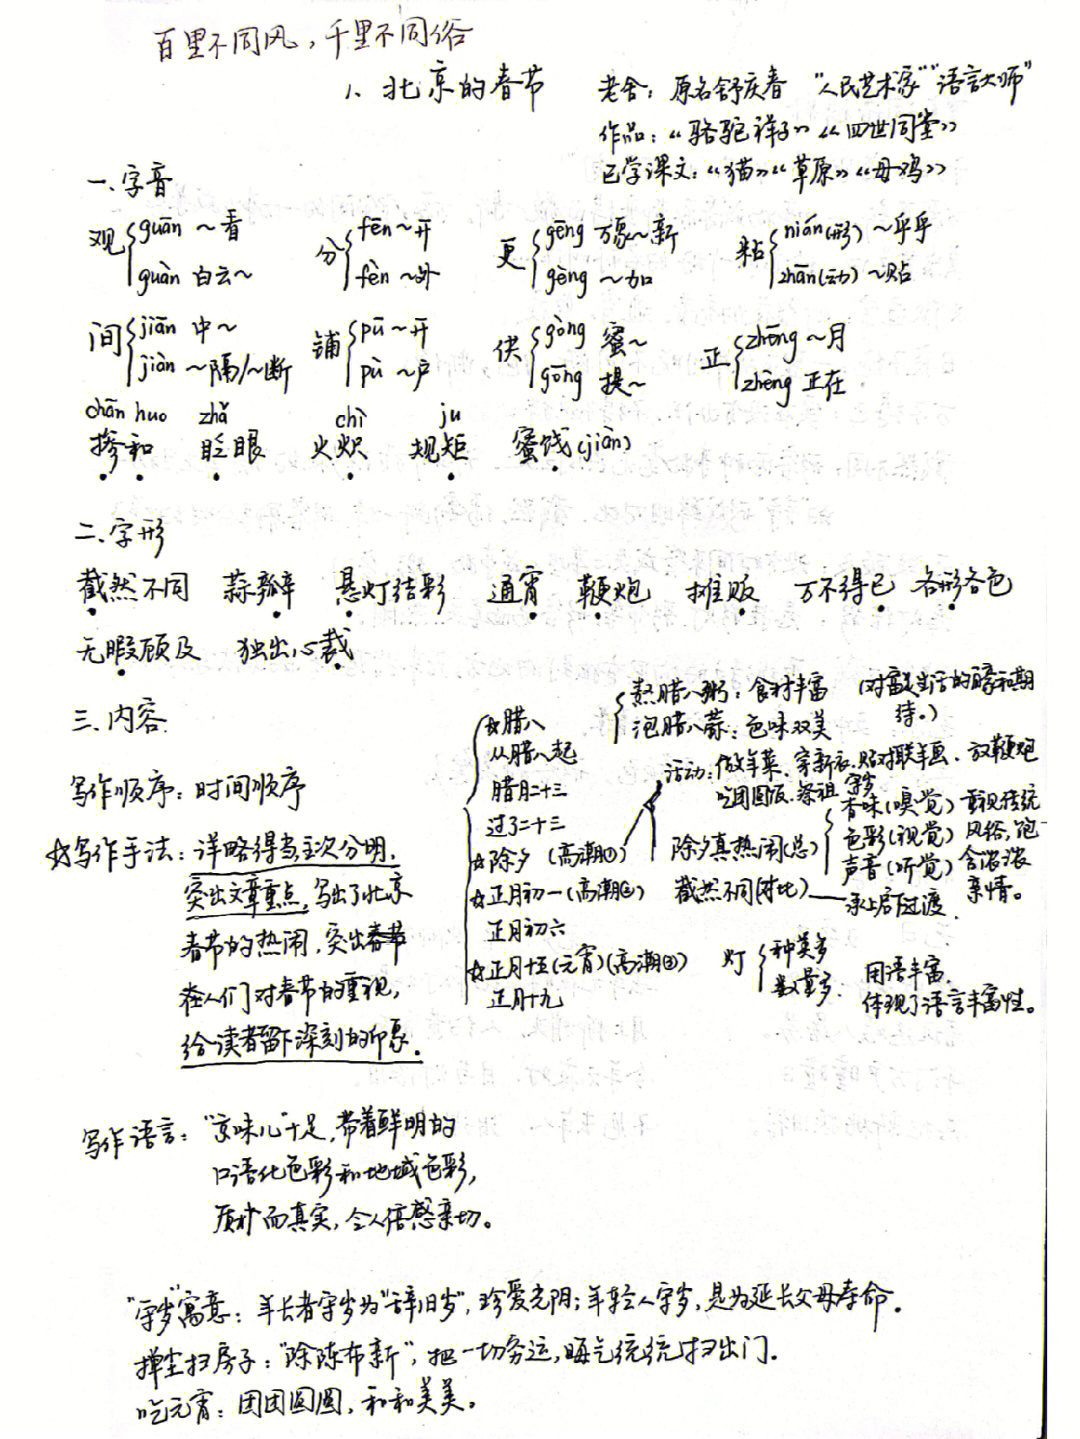 百里不同风，千里不同俗
1、北京的春节
老舍：原名舒庆春 “人民艺术家”“语言大师”
作品：《骆驼祥子》《四世同堂》
已学课文：《猫》《草原》《母鸡》
一、字音
观 guān ～看 分 fēn ～开 更 gēng 万象～新 粘 nián(形) ～乎乎
guàn 白云～ fèn ～外 gèng ～加 zhān(动) ～贴
间 jiān 中～ 铺 pū ～开 供 gòng 蜜～ 正 zhēng ～月
jiàn ～隔/～断 pù ～户 gōng 提～ zhèng 正在
chān huo zhǎ chì ju
掺和 眨眼 火炽 规矩 蜜饯(jiàn)
二、字形
截然不同 蒜瓣 悬灯结彩 通宵 鞭炮 摊贩 万不得已 各形各色
无暇顾及 独出心裁
三、内容
写作顺序：时间顺序
☆写作手法：详略得当主次分明，
突出文章重点，写出了北京
春节的热闹，突出春节
在人们对春节的重视，
给读者留下深刻的印象.
☆腊八
熬腊八粥：食材丰富
泡腊八蒜：色味双美
(对富足生活的期
待。)
从腊八起
腊月二十三
过了二十三
☆除夕 (高潮①)
活动：做年菜、穿新衣、贴对联年画、放鞭炮
吃团圆饭、祭祖、守岁
除夕真热闹(总)
香味(嗅觉)
色彩(视觉)
声音(听觉)
重视传统
风俗，饱
含浓浓
亲情。
☆正月初一(高潮②) 截然不同(对比)——承上启下过渡.
正月初六
☆正月十五(元宵)(高潮③) 灯 种类多
数量多.
用语丰富.
体现了语言丰富性。
正月十九
写作语言：“京味儿”十足，带着鲜明的
口语化色彩和地域色彩，
质朴而真实，令人倍感亲切。
“守岁”寓意：年长者守岁为“辞旧岁”，珍爱光阴；年轻人守岁，是为延长父母寿命.
掸尘扫房子：“除陈布新”，把一切穷运，晦气统统扫出门.
吃元宵：团团圆圆，和和美美。